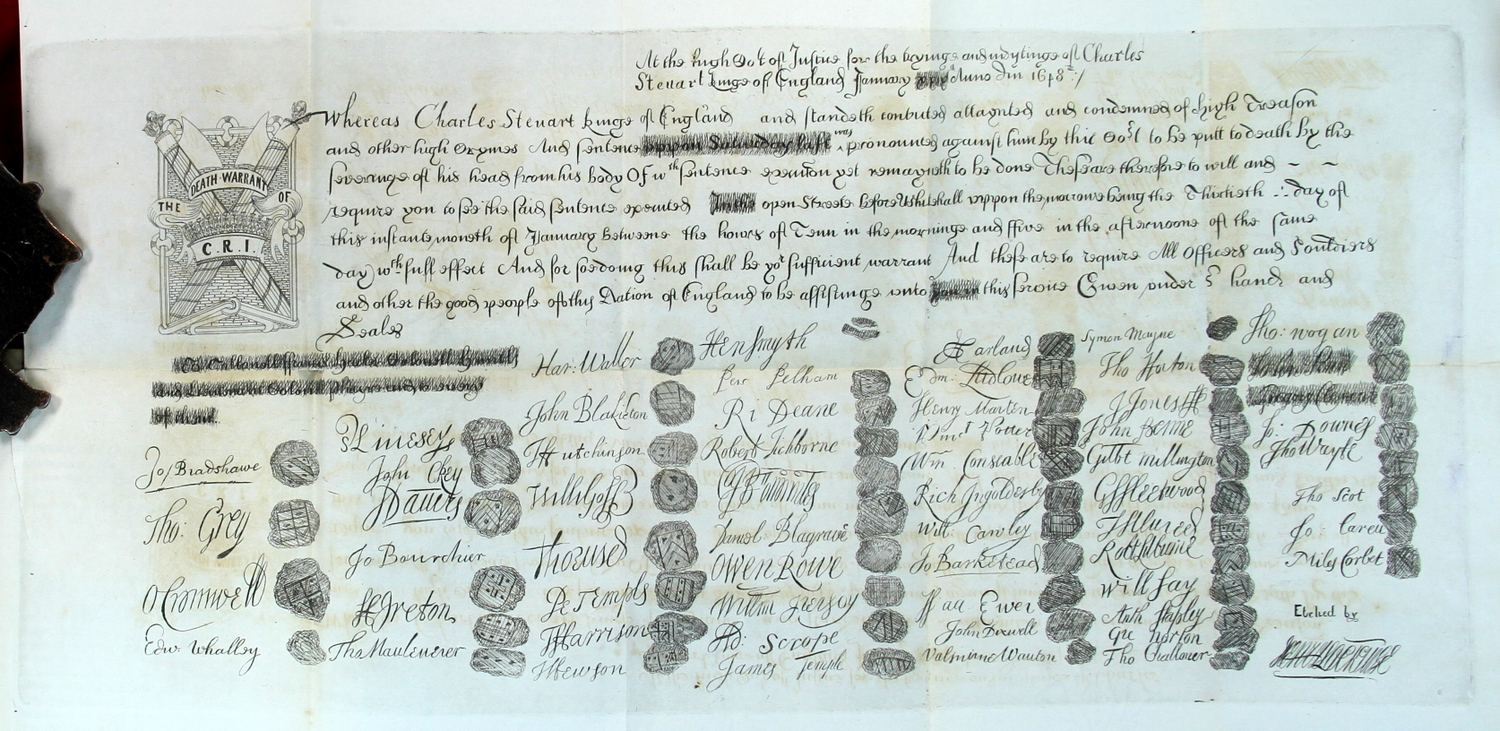 At the high Cot of Justice for the tryinge and iudginge of Charles
Steuart kinge of England January Anno Dm 1648:/
Whereas Charles Steuart kinge of England and standeth convicted attaynted and condemned of high Treason
and other high Crymes And sentence uppon Saturday last was pronounced against him by this Cot to be putt to death by the
severinge of his head from his body Of wch sentence execucon yet remayneth to be done These are therefore to will and
require you to see the said sentence executed In the open Streete before Whitehall uppon the morrowe being the Thirtieth day of
this instante moneth of January betweene the hours of Tenn in the morninge and ffive in the afternoone of the same
day wth full effect And for soe doing this shall be yor sufficient warrant And these are to require All Officers and Souldiers
and other the good people of this Nation of England to be assistinge unto you in this service Given under or hands and
Seales
THE DEATH-WARRANT OF
C.R.I.
Jo/ Bradshawe
Tho: Grey
O Cromwell
Edw: Whalley
John Okey
J Danvers
Jo Bourchier
H Ireton
Tho Mauleverer
Har: Waller
John Blakiston
J Hutchinson
Willi Goff
Tho Pride
Pe Temple
T Harrison
J Hewson
Hen Smyth
Per Pelham
Ri Deane
Robert Tichborne
H Edwardes
Daniel Blagrave
Owen Rowe
Willm Purefoy
Ad: Scrope
James Temple
A Garland
Edm: Ludlowe
Henry Marten
Vinct Potter
Wm Constable
Rich Ingoldesby
Will Cawley
Jo Barkstead
Isaa Ewer
John Dixwell
Valentine Wauton
Symon Mayne
Tho Horton
J Jones
John Penne
Gilbt Millington
G ffleetwood
J Alured
Robt Lilburne
Will Say
Anth Stapley
Gre Norton
Tho Challoner
Tho: Wogan
Gregory Clement
Jo: Downes
Tho Wayte
Tho Scot
Jo: Carew
Miles Corbet
Etched by